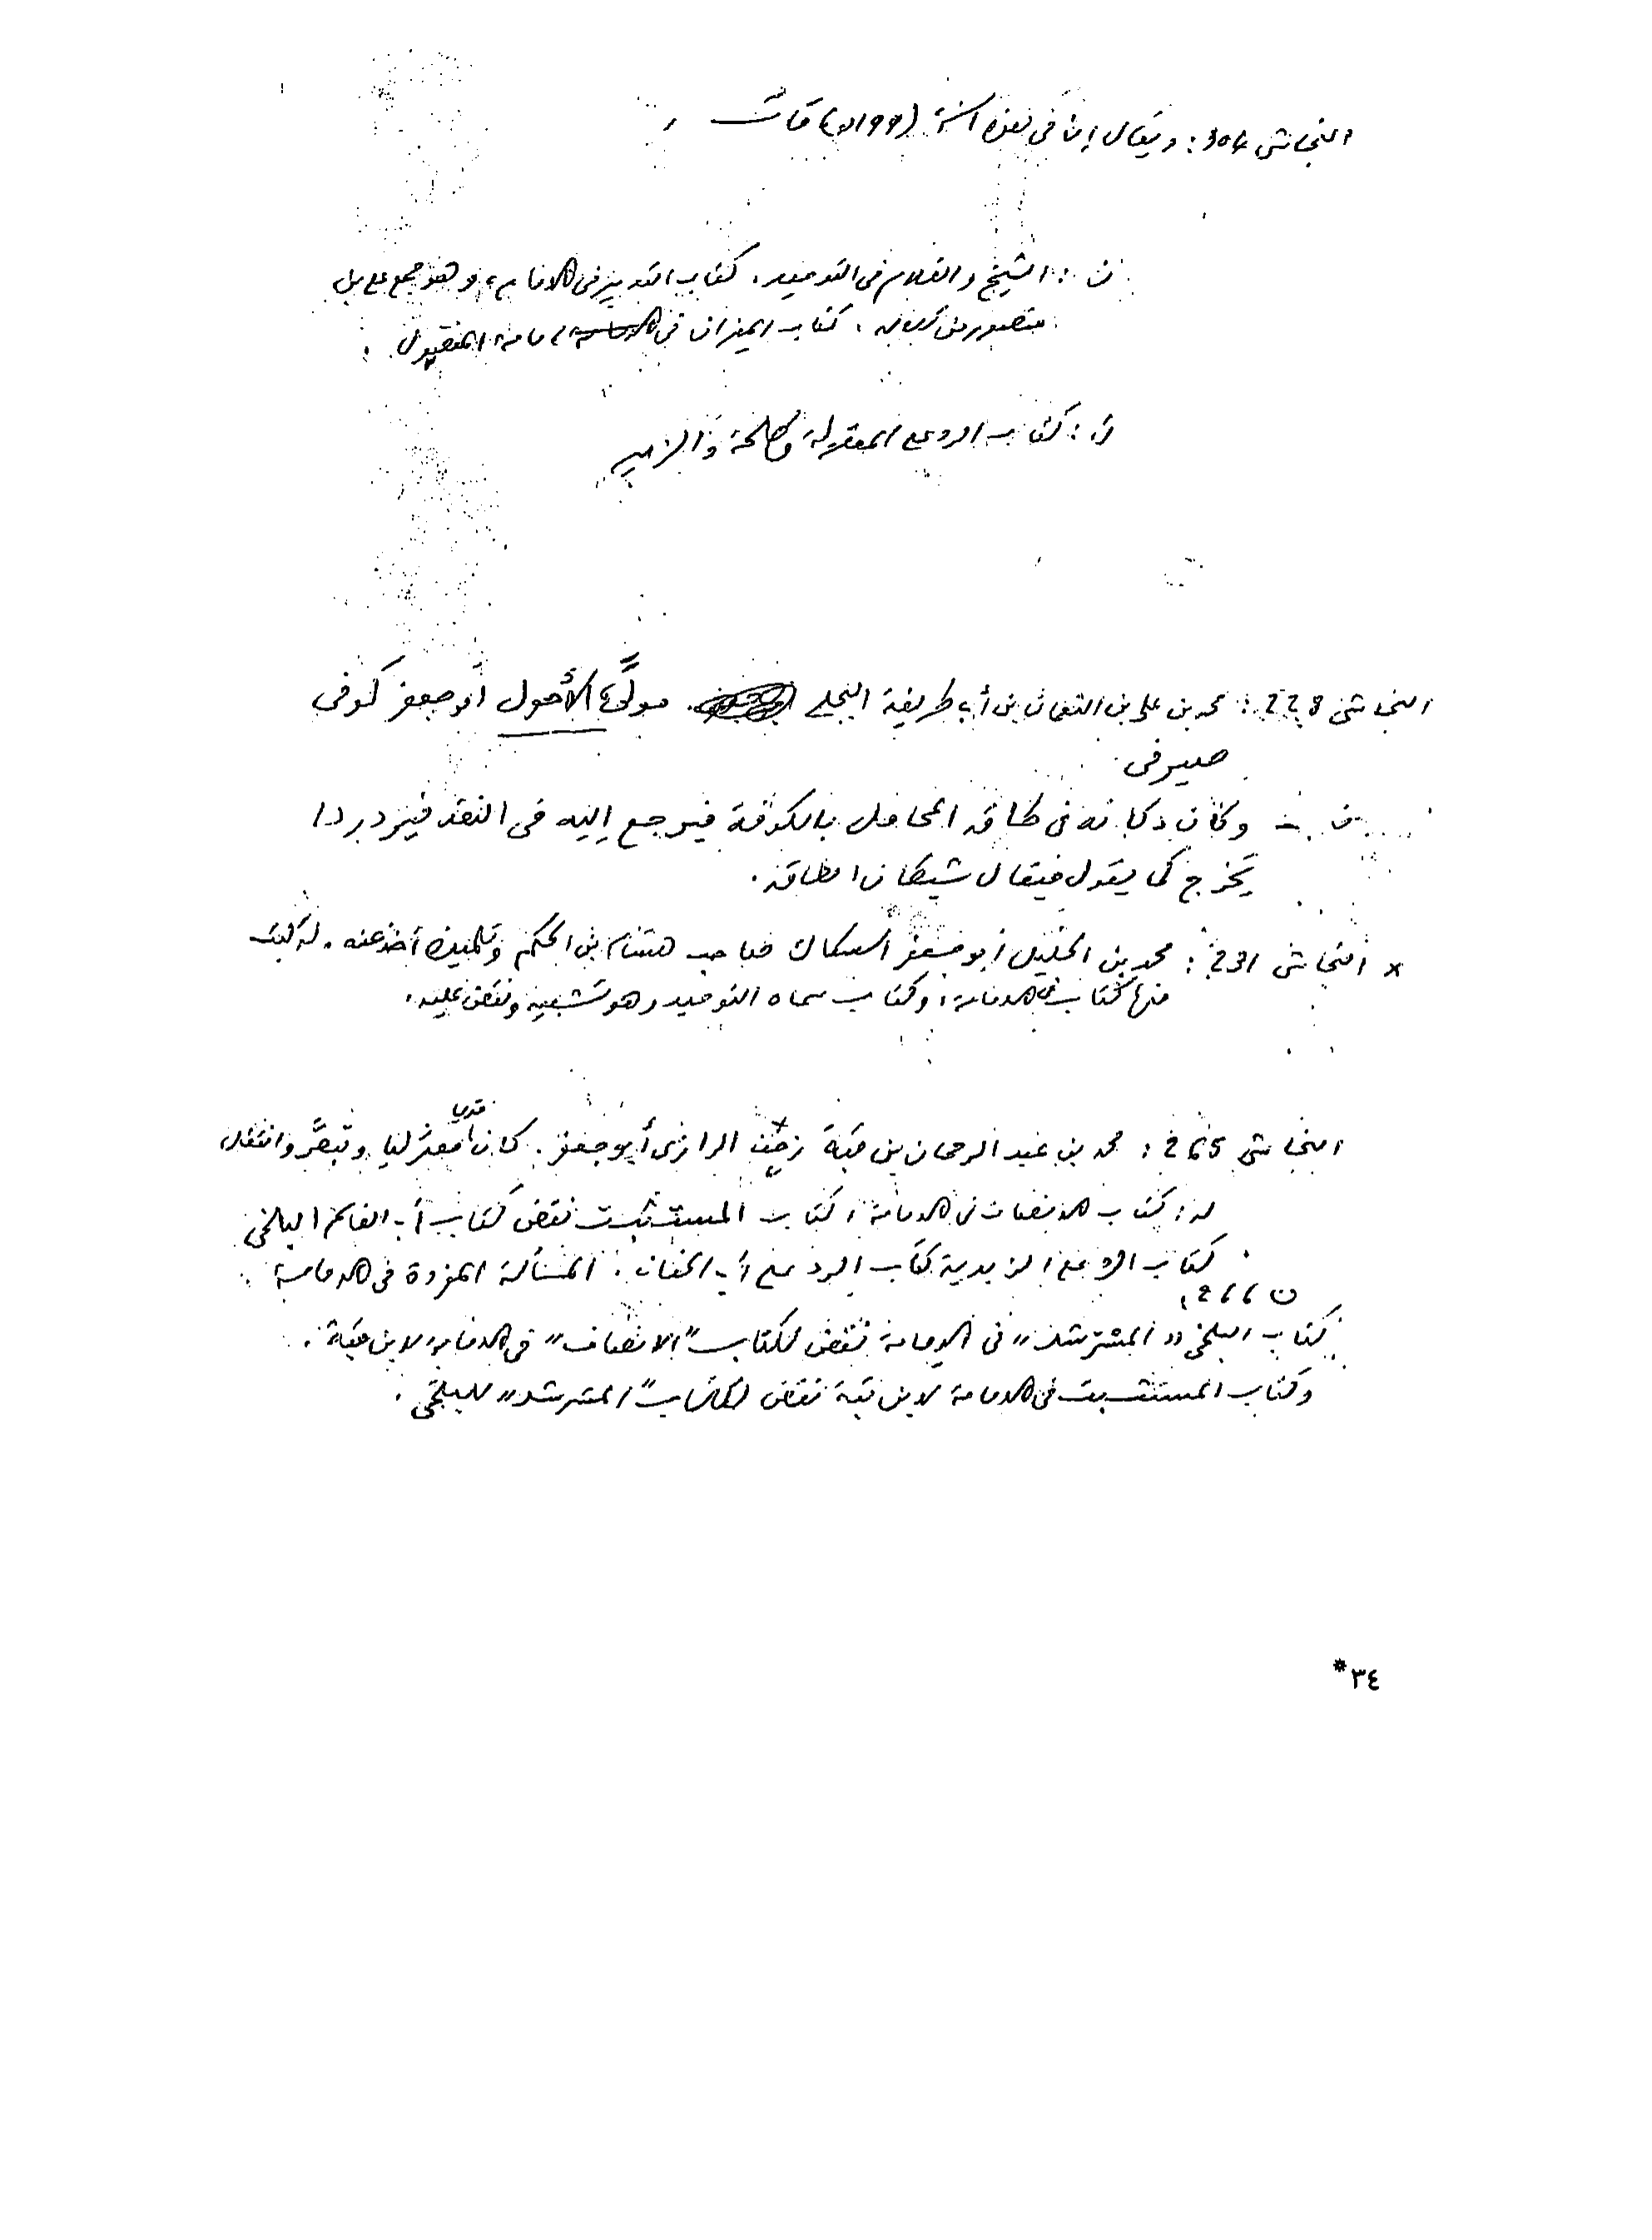 النجاشي 304: ويقال إن في هذه السنة (199هـ) مات
ن: الشيخ والغلام في التوحيد. كتاب التدبير في الإمامة، وهو جمع علي بن
منصور من كلامه. كتاب الميزان في إمامة المفضول.
ن: كتاب الرد على المعتزلة وطلحة والزبير
النجاشي 228: محمد بن علي بن النعمان بن أبي طريفة البجلي مولى الأحول أبو جعفر كوفي
صيرفي
ن: – وكان دكانه في طاق المحامل بالكوفة فيرجع إليه في النقد فيرد ردا
يخرج كما يقول فيقال شيطان الطاق.
× النجاشي 231: محمد بن الخليل أبو جعفر السكاك صاحب هشام بن الحكم وتلميذه أخذ عنه. له كتب
منها كتاب في الإمامة، وكتاب سماه التوحيد وهو تشبيه ونقض عليه.
النجاشي 265: محمد بن عبد الرحمان بن قبة الرازي أبو جعفر. كان قديما معتزليا وتبصَّر وانتقل
له: كتاب الانصاف في الإمامة، كتاب المستثبت نقض كتاب أبي القاسم البلخي
كتاب الرد على الزيدية كتاب الرد على أبي علي. المسألة المفردة في الإمامة.
ن 266،
كتاب البلخي "المسترشد" في الإمامة نقض لكتاب "الانصاف" في الإمامة لابن قبة.
وكتاب المستثبت في الإمامة لابن قبة نقض لكتاب "المسترشد" للبلخي.
٣٤*